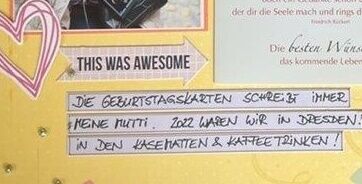 der dir die Seele mach und rings d
Friedrich Rückert
Die besten Wüns
das kommende Leben
THIS WAS AWESOME
DIE GEBURTSTAGSKARTEN SCHREIBT IMMER
MEINE MUTTI. 2022 WAREN WIR IN DRESDEN!
IN DEN KASEMATTEN & KAFFEETRINKEN!